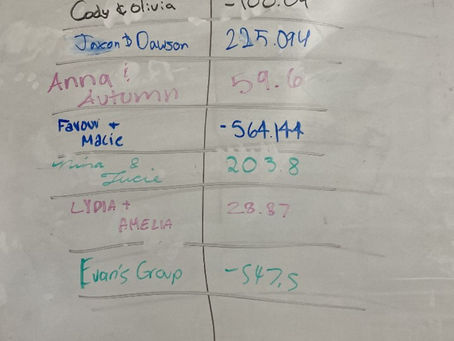 Cody & Olivia
Jaxon & Dawson 225.094
Anna &
Autumn 59.6
Favour +
Macie -564.144
Nina &
Lucie 203.8
LYDIA +
AMELIA 28.87
Evan's Group -547.5